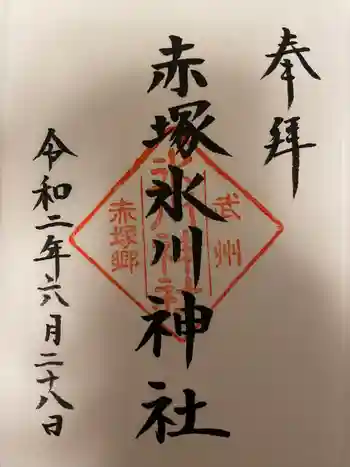 奉拝
赤塚氷川神社
令和二年六月二十八日
武州
氷川神社
赤塚郷